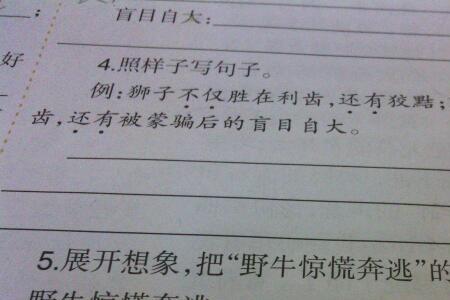 盲目自大：
；
4.照样子写句子。
好
例：狮子不仅胜在利齿，还有狡黠；
齿，还有被蒙骗后的盲目自大。
5.展开想象，把“野牛惊慌奔逃”的
野牛惊慌奔逃